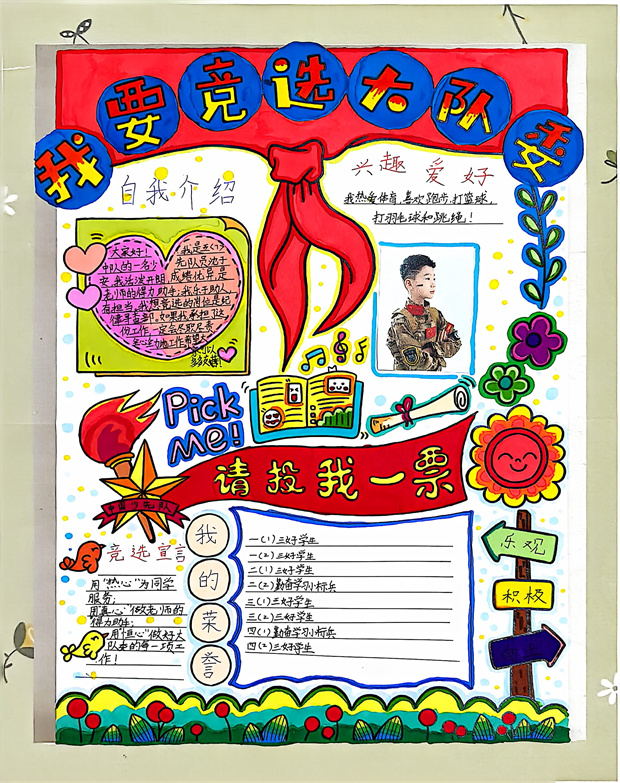 我要竞选大队委
自我介绍
大家好!我是五(7)
中队的一名少先队员沈于
安,我活泼开朗,成绩优异,是
老师的得力助手,我乐于助人,
有担当。我想竞选的岗位是纪
律委员部。如果我承担了这
份工作,一定会尽职尽责,
兴趣爱好
我热爱体育,喜欢跑步,打篮球,
打羽毛球和跳绳!
Pick
me!
请投我一票
中国少先队
竞选宣言
用"热心"为同学
服务;
用真心"做老师的
得力助手;
用"恒心"做好大
队委的每一项工
作!
我的荣誉
一(1)三好学生
一(2)三好学生
二(1)三好学生
二(2)勤奋学习小标兵
三(1)三好学生
三(2)三好学生
四(1)勤奋学习小标兵
四(2)三好学生
乐观
积极